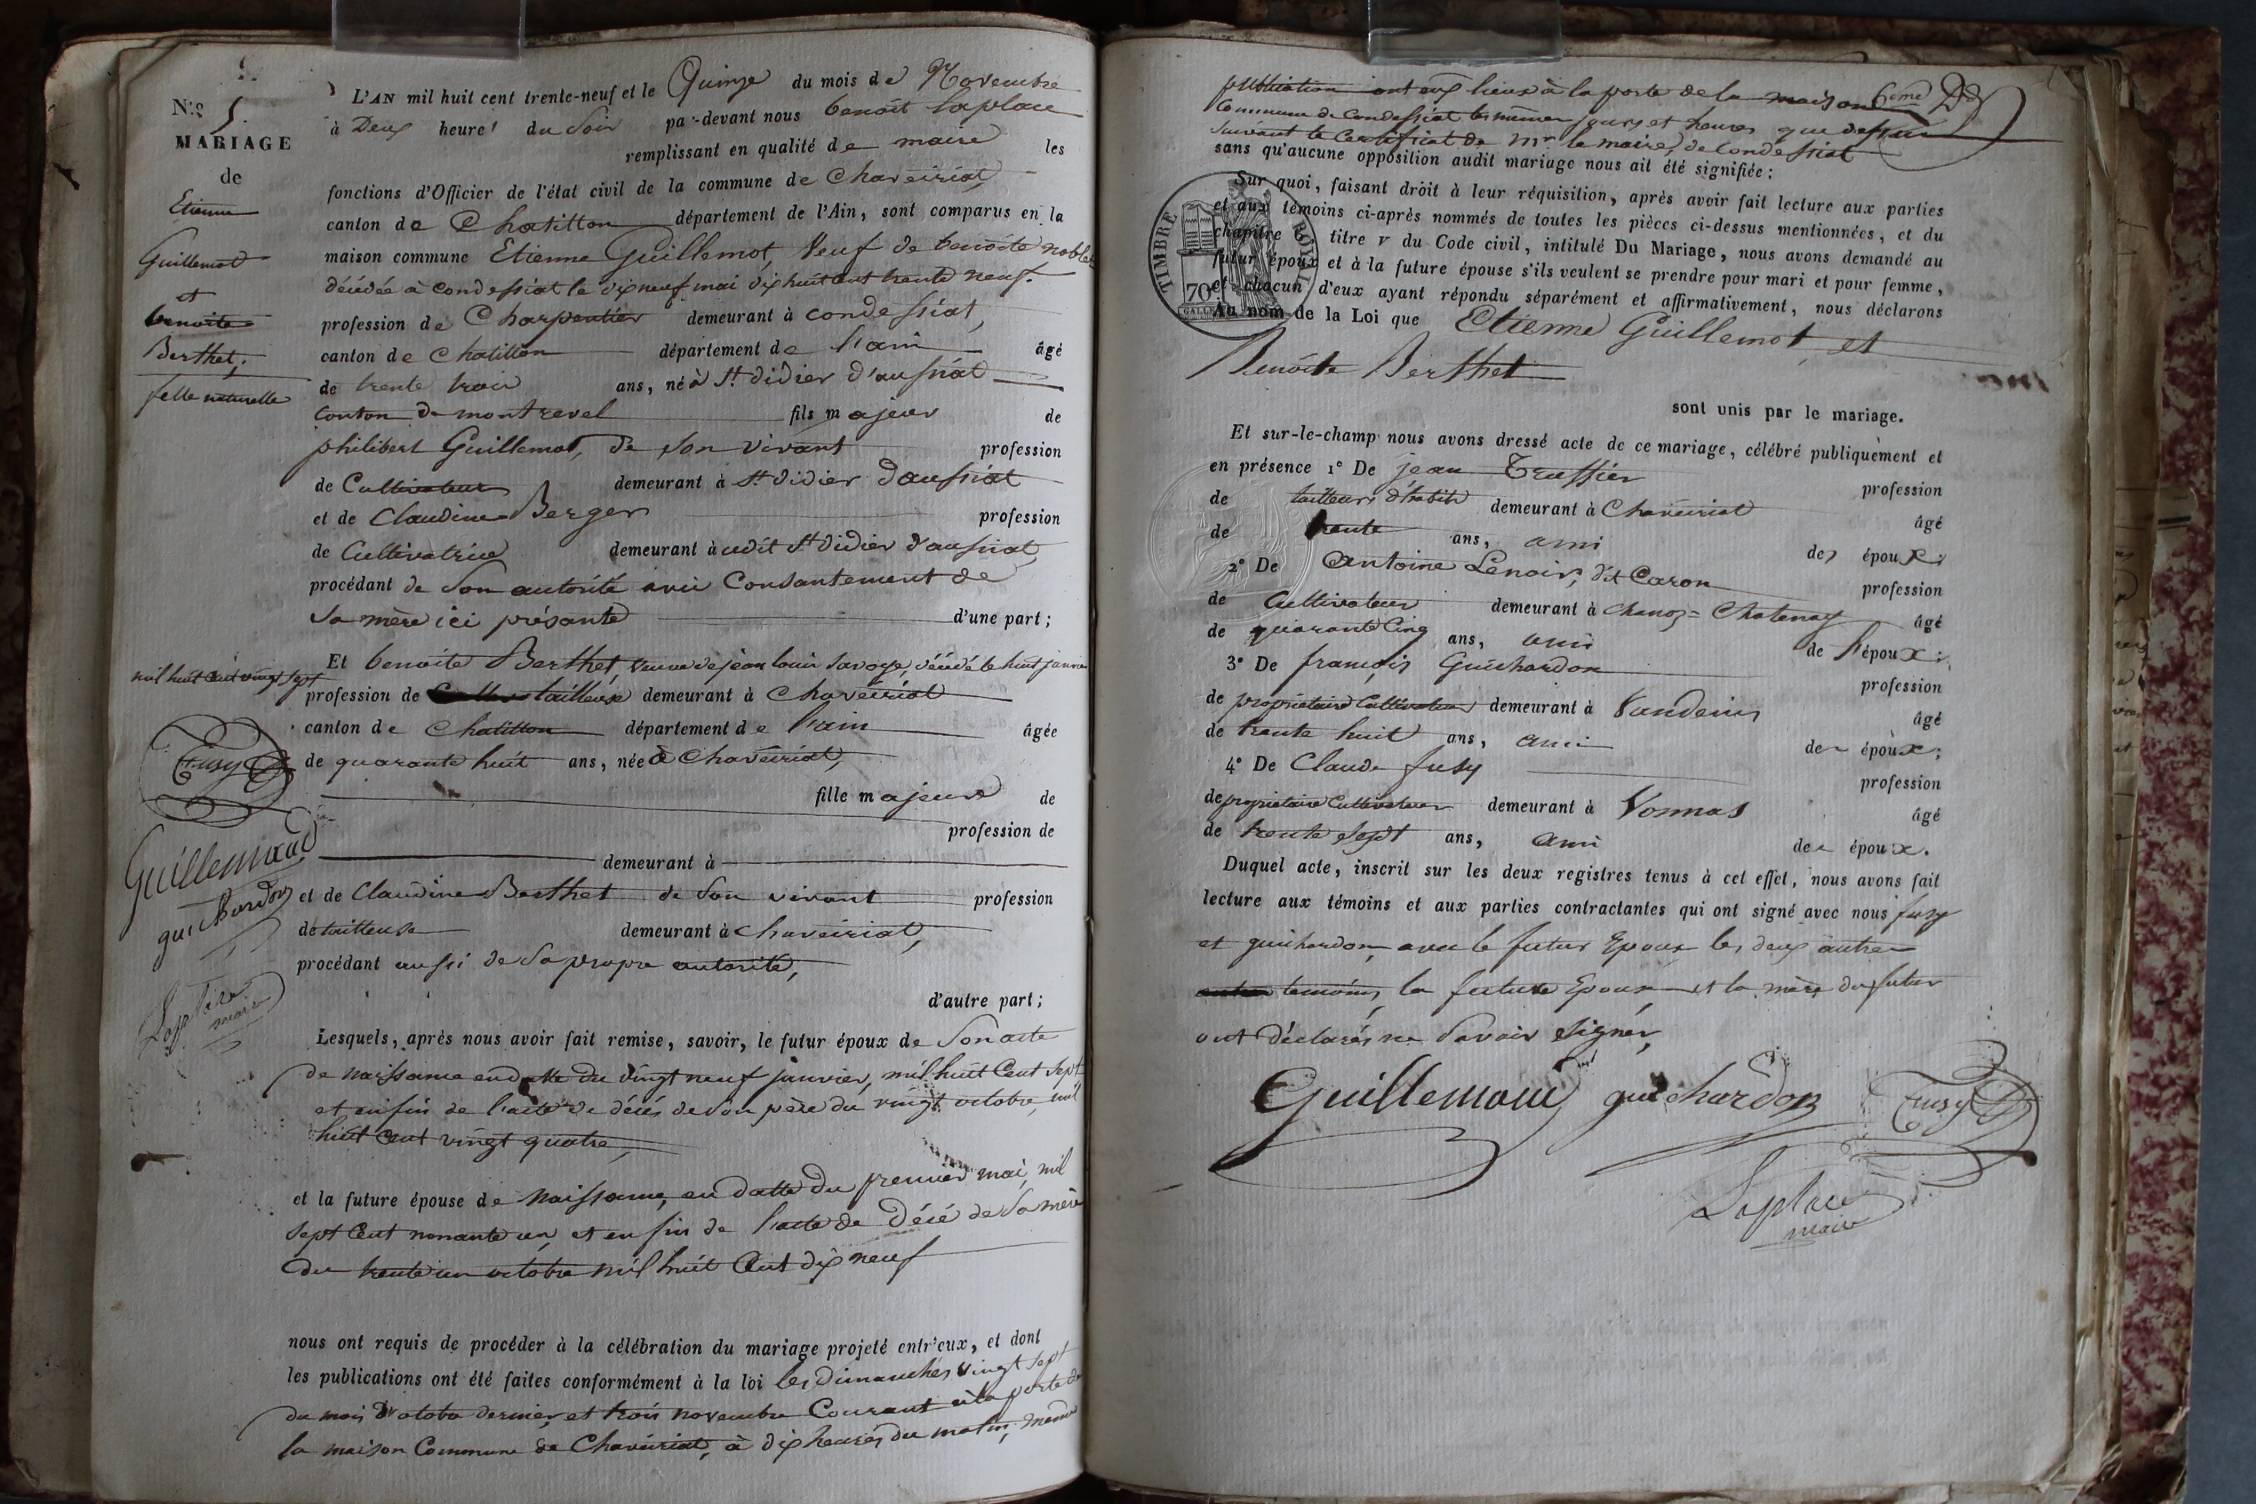 N.o 5.
MARIAGE
de
Etienne
Guillemot
et
benoite
Berthet,
fille naturelle
L'AN mil huit cent trente-neuf et le Quinze du mois de Novembre
à Deux heure du Soir pa-devant nous benoit Laplace
remplissant en qualité de maire les
fonctions d'Officier de l'état civil de la commune de Chaveiriat,
canton de Chatillon département de l'Ain, sont comparus en la
maison commune Etienne Guillemot, Veuf de benoite noblet
décédée à condessiat le dix neuf mai dix huit cent trente neuf.
profession de Charpentier demeurant à condessiat,
canton de Chatillon département de l'ain âgé
de trente trois ans, né à St didier d'aussiat
canton de montrevel fils majeur de
philibert Guillemot, de son vivant profession
de Cultivateur demeurant à St didier d'aussiat
et de Claudine Berger profession
de Cultivatrice demeurant à udit St didier d'aussiat,
procédant de son autorité avec Consantement de
sa mère ici présante d'une part;
Et benoite Berthet, veuve de jean louis savoye, décédé le huit janvier
mil huit cent vingt sept
profession de tailleuse demeurant à Chaveiriat
canton de Chatillon département de l'ain âgée
de quarante huit ans, née à Chaveiriat,
fille majeure de
profession de
demeurant à
et de Claudine Berthet de son vivant profession
de tailleuse demeurant à Chaveiriat,
procédant aussi de sa propre autorité,
d'autre part;
Fusy
Guillemaud
guichardon
Laplace
maire
Lesquels, après nous avoir fait remise, savoir, le futur époux de son acte
de naissance en datte du vingt neuf janvier, mil huit Cent sept
et enfin de l'acte de décés de son père du vingt octobre, mil
huit cent vingt quatre,
et la future épouse de naissance, en datte du premier mai, mil
sept Cent nonante un, et enfin de l'acte de Décé de sa mère
du trente un octobre mil huit Cent dix neuf
nous ont requis de procéder à la célébration du mariage projeté entr'eux, et dont
les publications ont été faites conformément à la loi les dimanches vingt sept
du mois d'octobre dernier, et trois novembre Courant à la porte de
la maison Commune de Chaveiriat, à dix heures du matin, meme
publication ont eus lieux à la porte de la maison 6eme
Commune de Condessiat les mêmes jours et heures que dessus
suivant le Certificat de Mr le maire de Condessiat
sans qu'aucune opposition audit mariage nous ait été signifiée;
Sur quoi, faisant droit à leur réquisition, après avoir fait lecture aux parties
et aux témoins ci-après nommés de toutes les pièces ci-dessus mentionnées, et du
chapitre 6 titre v du Code civil, intitulé Du Mariage, nous avons demandé au
futur époux et à la future épouse s'ils veulent se prendre pour mari et pour femme,
et chacun d'eux ayant répondu séparément et affirmativement, nous déclarons
Au nom de la Loi que Etienne Guillemot, et
TIMBRE ROYAL
70c
Benoite Berthet
sont unis par le mariage.
Et sur-le-champ nous avons dressé acte de ce mariage, célébré publiquement et
en présence 1° De jean Truffier profession
de tailleurs d'habits demeurant à Chaveiriat âgé
de trente ans, ami des époux;
2° De Antoine Lenoir, dit Caron profession
de Cultivateur demeurant à Chanoz-Chatenay âgé
de quarante Cinq ans, ami de l'époux;
3° De françois Guichardon profession
de propriétaire Cultivateur demeurant à Vandeins âgé
de trente huit ans, ami de époux;
4° De Claude fusy profession
de propriétaire Cultivateur demeurant à Vonnas âgé
de trente sept ans, ami de époux.
Duquel acte, inscrit sur les deux registres tenus à cet effet, nous avons fait
lecture aux témoins et aux parties contractantes qui ont signé avec nous fusy
et guichardon, avec le futur Epoux les deux autres
temoins, la future Epouse et la mère du futur
ont déclarés ne savoir signer,
Guillemaud guichardon Fusy
Laplace
maire